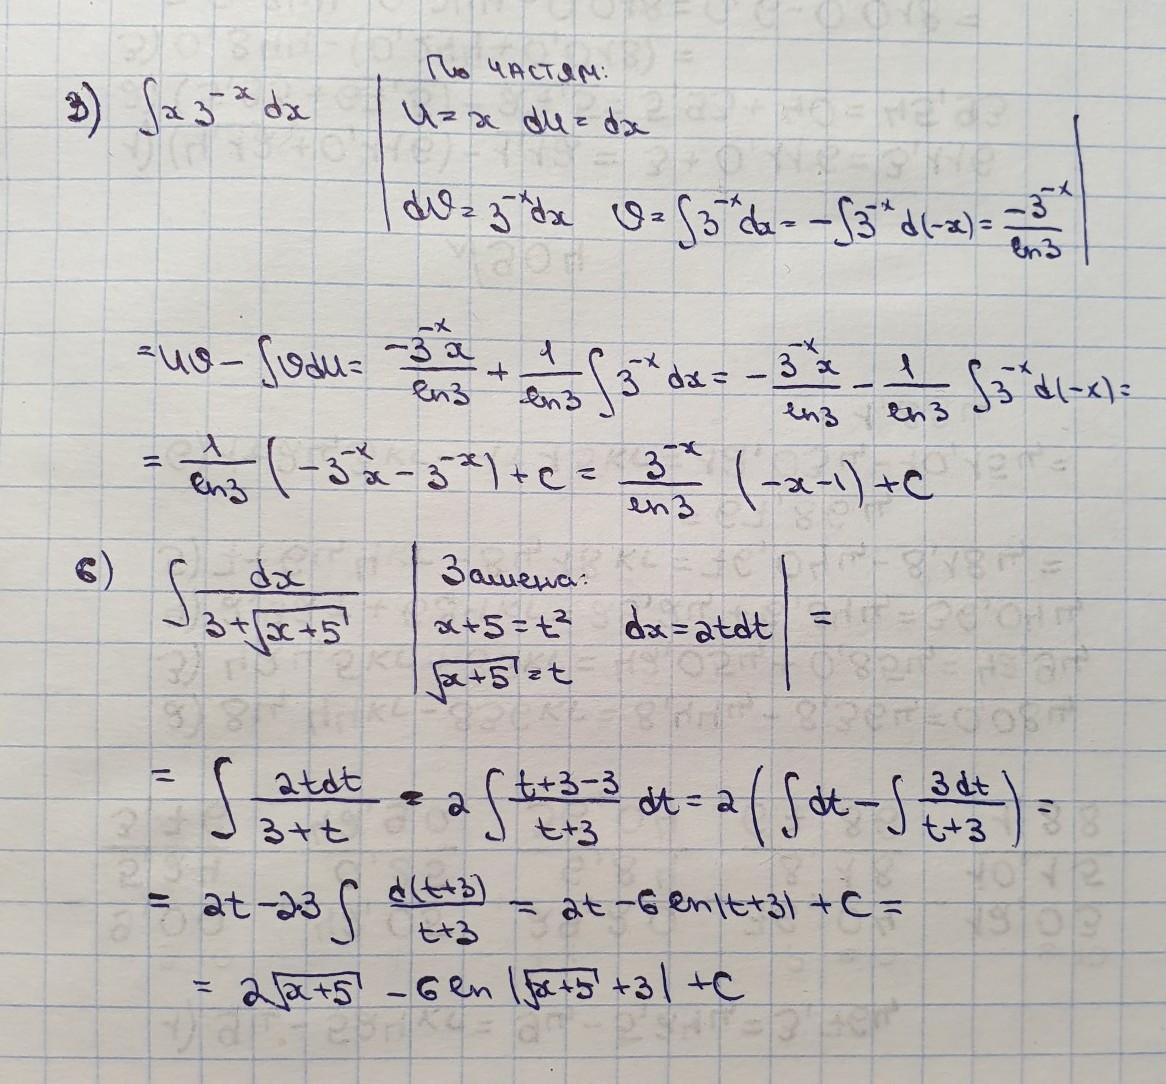 По частям:
3) ∫x 3^{-x} dx | u = x du = dx
dv = 3^{-x}dx v = ∫3^{-x}dx = -∫3^{-x} d(-x) = \frac{-3^{-x}}{ln3} |
= uv - ∫vdu = \frac{-3^{-x}x}{ln3} + \frac{1}{ln3} ∫3^{-x} dx = -\frac{3^{-x}x}{ln3} - \frac{1}{ln3} ∫3^{-x}d(-x) =
= \frac{1}{ln3} (-3^{-x}x - 3^{-x}) + C = \frac{3^{-x}}{ln3} (-x-1) + C
6) ∫\frac{dx}{3+√(x+5)} | Замена:
x+5 = t² dx = 2tdt | =
√(x+5) = t
= ∫\frac{2tdt}{3+t} = 2∫\frac{t+3-3}{t+3} dt = 2(∫dt - ∫\frac{3dt}{t+3}) =
= 2t - 2·3∫\frac{d(t+3)}{t+3} = 2t - 6 ln|t+3| + C =
= 2√(x+5) - 6 ln|√(x+5) + 3| + C